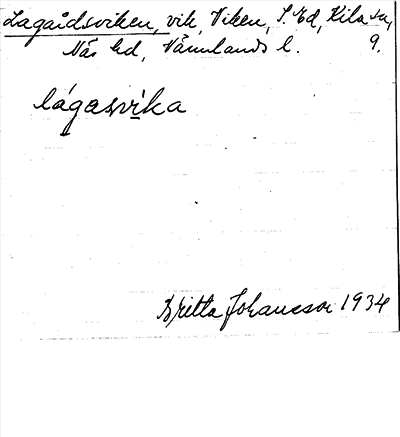 Lagaidsviken, vik, Viken, S. Ed, Kila sn,
Näs hd, Värmlands l. 9.
lágasvika
Britta Johansson 1934